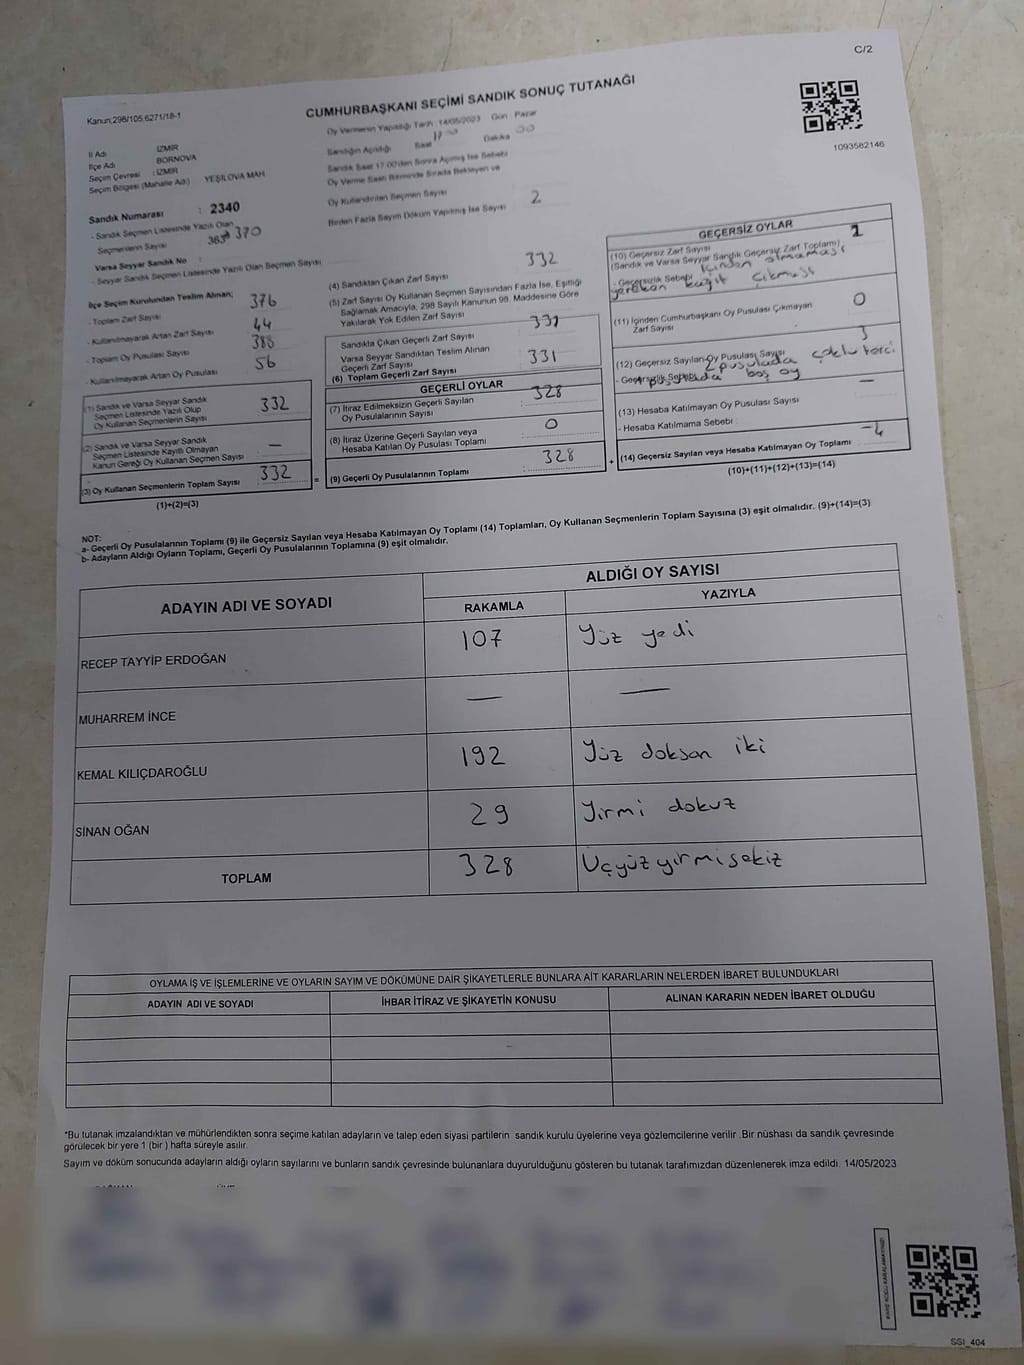 C/2
Kanun;298/105,6271/18-1
CUMHURBAŞKANI SEÇİMİ SANDIK SONUÇ TUTANAĞI
1093582146
İl Adı İZMİR
İlçe Adı BORNOVA
Seçim Çevresi : İZMİR
Seçim Bölgesi (Mahalle Adı) YEŞİLOVA MAH
Sandık Numarası : 2340
- Sandık Seçmen Listesinde Yazılı Olan
Seçmenlerin Sayısı 370
Varsa Seyyar Sandık No :
- Seyyar Sandık Seçmen Listesinde Yazılı Olan Seçmen Sayısı
İlçe Seçim Kurulundan Teslim Alınan;
- Toplam Zarf Sayısı 376
- Kullanılmayarak Artan Zarf Sayısı 44
- Toplam Oy Pusulası Sayısı 388
- Kullanılmayarak Artan Oy Pusulası 56
(1) Sandık ve Varsa Seyyar Sandık
Seçmen Listesinde Yazılı Olup
Oy Kullanan Seçmenlerin Sayısı 332
(2) Sandık ve Varsa Seyyar Sandık
Seçmen Listesinde Kayıtlı Olmayan
Kanun Gereği Oy Kullanan Seçmen Sayısı —
(3) Oy Kullanan Seçmenlerin Toplam Sayısı 332
(1)+(2)=(3)
Oy Vermenin Yapıldığı Tarih 14/05/2023 Gün Pazar
Sandığın Açıldığı Saat 17 Dakika 00
Sandık Saat 17.00'den Sonra Açılmış İse Sebebi
Oy Verme Saati Bitiminde Sırada Bekleyen ve
Oy Kullandırılan Seçmen Sayısı
Birden Fazla Sayım Döküm Yapılmış İse Sayısı 2
(4) Sandıktan Çıkan Zarf Sayısı 332
(5) Zarf Sayısı Oy Kullanan Seçmen Sayısından Fazla İse, Eşitliği
Sağlamak Amacıyla, 298 Sayılı Kanunun 98. Maddesine Göre
Yakılarak Yok Edilen Zarf Sayısı
Sandıkta Çıkan Geçerli Zarf Sayısı 331
Varsa Seyyar Sandıktan Teslim Alınan
Geçerli Zarf Sayısı
(6) Toplam Geçerli Zarf Sayısı 331
GEÇERLİ OYLAR
(7) İtiraz Edilmeksizin Geçerli Sayılan
Oy Pusulalarının Sayısı 328
(8) İtiraz Üzerine Geçerli Sayılan veya
Hesaba Katılan Oy Pusulası Toplamı 0
= (9) Geçerli Oy Pusulalarının Toplamı 328
GEÇERSİZ OYLAR
(10) Geçersiz Zarf Sayısı 1
(Sandık ve Varsa Seyyar Sandık Geçersiz Zarf Toplamı)
- Geçersizlik Sebebi içinden olmaması
gereken kağıt çıkması
(11) İçinden Cumhurbaşkanı Oy Pusulası Çıkmayan
Zarf Sayısı 0
(12) Geçersiz Sayılan Oy Pusulası Sayısı 3
- Geçersizlik Sebebi 2 pusulada çoklu terci
1 pusulada boş oy
(13) Hesaba Katılmayan Oy Pusulası Sayısı —
- Hesaba Katılmama Sebebi :
+ (14) Geçersiz Sayılan veya Hesaba Katılmayan Oy Toplamı 4
(10)+(11)+(12)+(13)=(14)
NOT:
a- Geçerli Oy Pusulalarının Toplamı (9) ile Geçersiz Sayılan veya Hesaba Katılmayan Oy Toplamı (14) Toplamları, Oy Kullanan Seçmenlerin Toplam Sayısına (3) eşit olmalıdır. (9)+(14)=(3)
b- Adayların Aldığı Oyların Toplamı, Geçerli Oy Pusulalarının Toplamına (9) eşit olmalıdır.
ADAYIN ADI VE SOYADI
ALDIĞI OY SAYISI
RAKAMLA YAZIYLA
RECEP TAYYİP ERDOĞAN 107 Yüz yedi
MUHARREM İNCE — —
KEMAL KILIÇDAROĞLU 192 Yüz doksan iki
SİNAN OĞAN 29 Yirmi dokuz
TOPLAM 328 Üçyüzyirmisekiz
OYLAMA İŞ VE İŞLEMLERİNE VE OYLARIN SAYIM VE DÖKÜMÜNE DAİR ŞİKAYETLERLE BUNLARA AİT KARARLARIN NELERDEN İBARET BULUNDUKLARI
ADAYIN ADI VE SOYADI İHBAR İTİRAZ VE ŞİKAYETİN KONUSU ALINAN KARARIN NEDEN İBARET OLDUĞU
*Bu tutanak imzalandıktan ve mühürlendikten sonra seçime katılan adayların ve talep eden siyasi partilerin sandık kurulu üyelerine veya gözlemcilerine verilir .Bir nüshası da sandık çevresinde
görülecek bir yere 1 (bir ) hafta süreyle asılır.
Sayım ve döküm sonucunda adayların aldığı oyların sayılarını ve bunların sandık çevresinde bulunanlara duyurulduğunu gösteren bu tutanak tarafımızdan düzenlenerek imza edildi. 14/05/2023
SSI_404